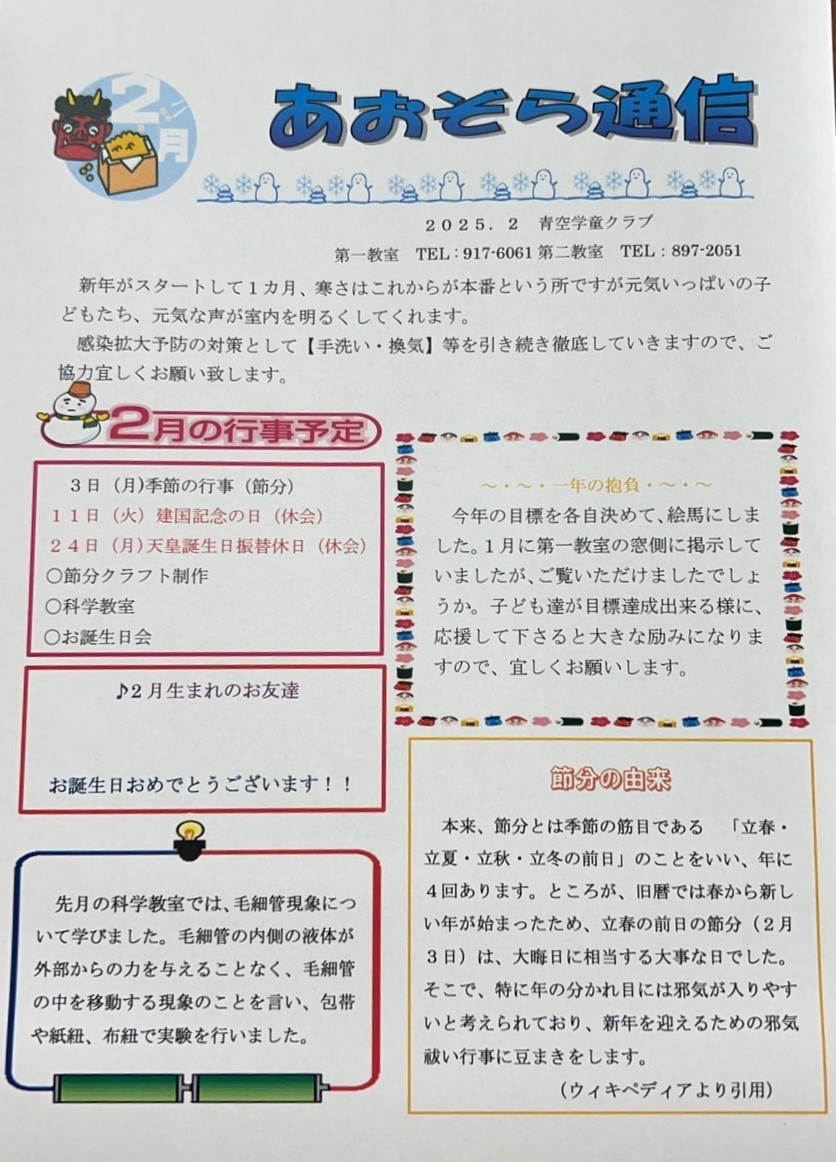 2月
あおぞら通信
2025.2 青空学童クラブ
第一教室 TEL:917-6061 第二教室 TEL:897-2051
新年がスタートして1カ月、寒さはこれからが本番という所ですが元気いっぱいの子
どもたち、元気な声が室内を明るくしてくれます。
感染拡大予防の対策として【手洗い・換気】等を引き続き徹底していきますので、ご
協力宜しくお願い致します。
2月の行事予定
3日(月)季節の行事(節分)
11日(火)建国記念の日(休会)
24日(月)天皇誕生日振替休日(休会)
〇節分クラフト制作
〇科学教室
〇お誕生日会
♪2月生まれのお友達
お誕生日おめでとうございます!!
先月の科学教室では、毛細管現象につ
いて学びました。毛細管の内側の液体が
外部からの力を与えることなく、毛細管
の中を移動する現象のことを言い、包帯
や紙紐、布紐で実験を行いました。
~・~・一年の抱負・~・~
今年の目標を各自決めて、絵馬にしま
した。1月に第一教室の窓側に掲示して
いましたが、ご覧いただけましたでしょ
うか。子ども達が目標達成出来る様に、
応援して下さると大きな励みになりま
すので、宜しくお願いします。
節分の由来
本来、節分とは季節の筋目である 「立春・
立夏・立秋・立冬の前日」のことをいい、年に
4回あります。ところが、旧暦では春から新し
い年が始まったため、立春の前日の節分(2月
3日)は、大晦日に相当する大事な日でした。
そこで、特に年の分かれ目には邪気が入りやす
いと考えられており、新年を迎えるための邪気
祓い行事に豆まきをします。
(ウィキペディアより引用)